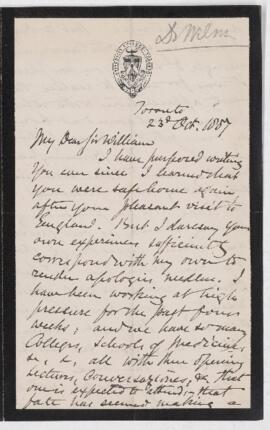 Dr Wilson
Toronto
23d Oct. 1887
My Dear Sir William
I have purposed writing
you ever since I learned that
you were safe home again
after your pleasant visit to
England. But I daresay your
own experiences sufficiently
correspond with my own to
render apologies needless. I
have been working at high
pressure for the past four
weeks; and we have so many
Colleges, Schools of Medicine,
&c, &c, all with their opening
lectures, Conversaziones, &c that
one is expected to attend; that
fate has seemed making a